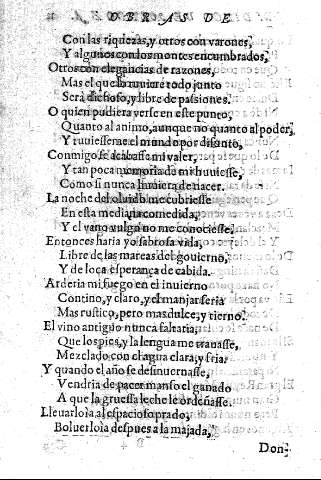 OBRAS DE
Con las riquezas, y otros con varones,
Y algunos con los montes encumbrados,
Otros con elegancias de razones,
Mas el que lo tuuiere todo junto
Será dichoso, y libre de passiones.
O quien pudiera verse en este punto,
Quanto al animo, aunque no quanto al poder,
Y tuuiesse me el mundo por difunto,
Conmigo se acabasse mi valer,
Y tan poca memoria de mi huuiesse,
Como si nunca huuiera de nacer.
La noche del oluido me cubriesse
En esta mediana comedida,
Y el vano vulgo no me conociesse,
Entonces haria yo sabrosa vida,
Libre de las mareas del gouierno,
Y de loca esperança de cabida.
Arderia mi fuego en el inuierno
Contino, y claro, y el manjar seria
Mas rustico, pero mas dulce, y tierno.
El vino antiguo nunca faltaria,
Que los pies, y la lengua me trauasse,
Mezclado con el agua clara, y fria,
Y quando el año se desinuernasse,
Vendria de pacer manso el ganado
A que la gruessa leche le ordeñasse.
Lleuarloia al espacioso prado,
Boluerloia despues a la majada,
Don-